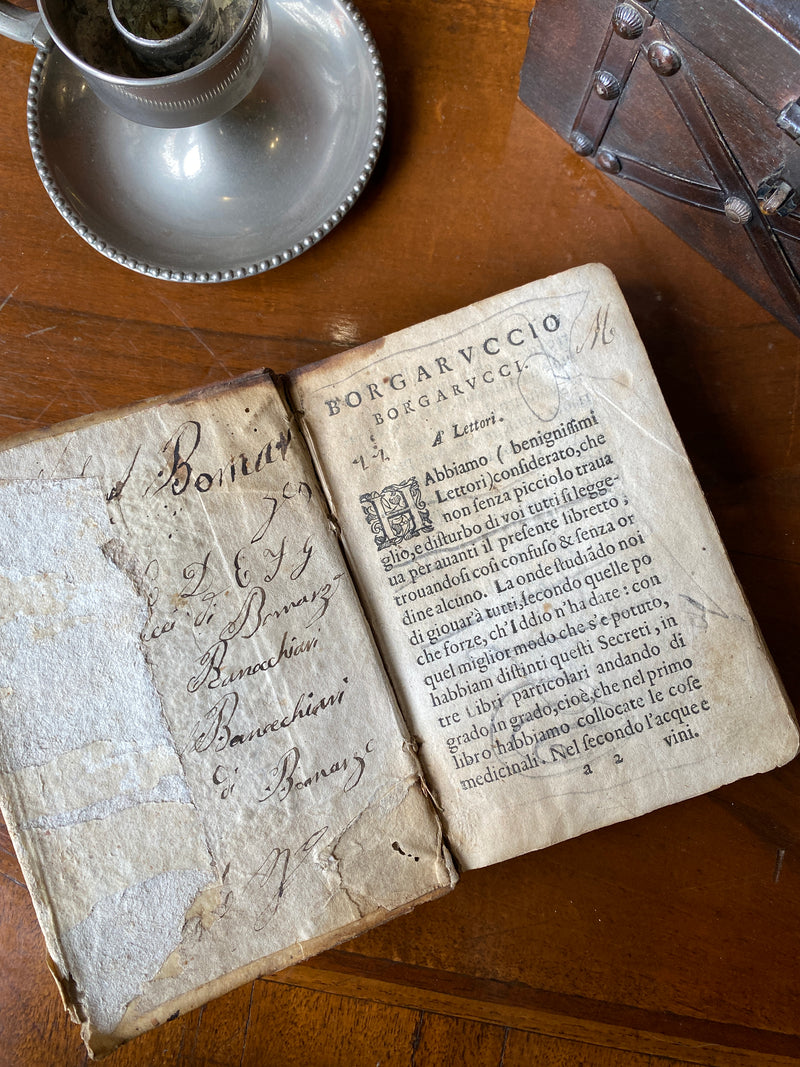 Bomar
D E F g
di Bomarz
Banachiari
Banacchiari
di Bomarzo
BORGARVCCIO
BORGARVCCI.
A' Lettori.
HAbbiamo ( benignissimi
Lettori) considerato, che
non senza picciolo traua
glio, e disturbo di voi tutti si legge-
ua per auanti il presente libretto ;
trouandosi cosi confuso & senza or
dine alcuno. La onde studiãdo noi
di giouar'à tutti, secondo quelle po
che forze, ch'Iddio n'ha date : con
quel miglior modo che s'e potuto,
habbiam distinti questi Secreti, in
tre Libri particolari andando di
grado in grado, cioè, che nel primo
libro habbiamo collocate le cose
medicinali. Nel secondo l'acque e
a 2 vini.
M